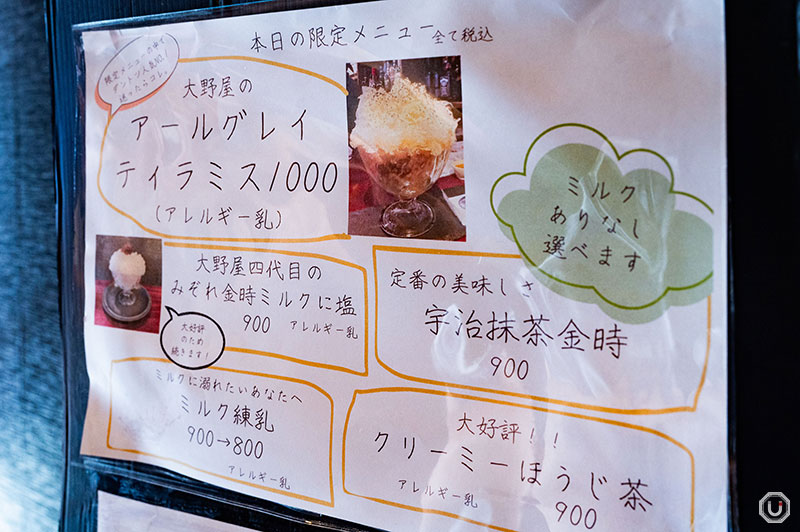 本日の限定メニュー全て税込
限定メニューの中で
ダントツ人気NO.1
迷ったらコレ。
大野屋の
アールグレイ
ティラミス1000
(アレルギー乳)
ミルク
ありなし
選べます
大野屋四代目の
みぞれ金時ミルクに塩
900 アレルギー乳
大好評
のため
続きます!
定番の美味しさ
宇治抹茶金時
900
ミルクに溺れたいあなたへ
ミルク練乳
900→800
アレルギー乳
大好評!!
クリーミーほうじ茶
アレルギー乳 900
U